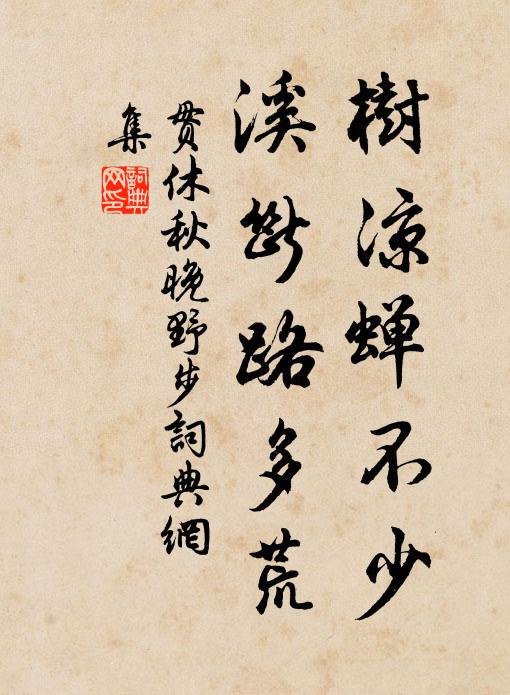 樹涼蟬不少
溪斷路多荒
貫休秋晚野步詞典網
集
詞典
网印